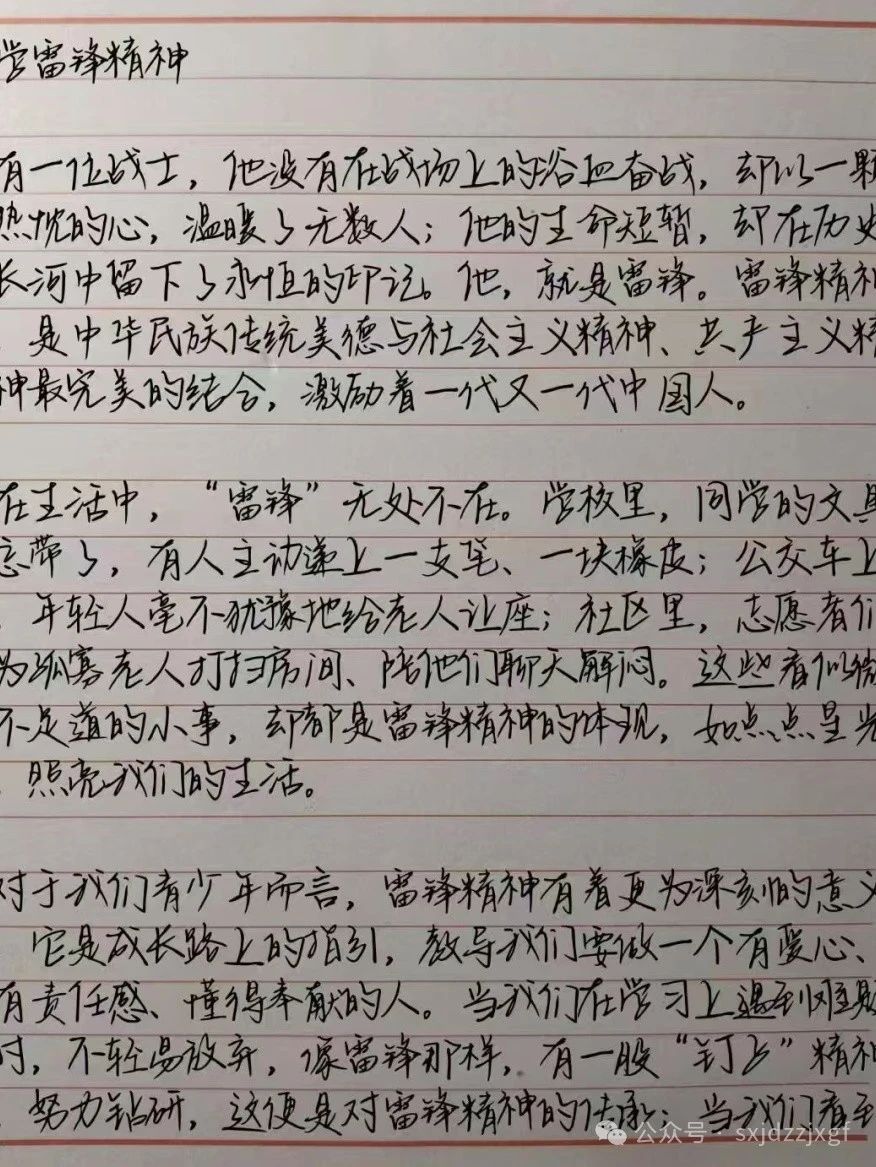 学雷锋精神
有一位战士，他没有在战场上的浴血奋战，却以一颗
热忱的心，温暖了无数人；他的生命短暂，却在历史
长河中留下了永恒的印记。他，就是雷锋。雷锋精神
，是中华民族传统美德与社会主义精神、共产主义精
神最完美的结合，激励着一代又一代中国人。
在生活中，“雷锋”无处不在。学校里，同学的文具
忘带了，有人主动递上一支笔、一块橡皮；公交车上
，年轻人毫不犹豫地给老人让座；社区里，志愿者们
为孤寡老人打扫房间、陪他们聊天解闷。这些看似微
不足道的小事，却都是雷锋精神的体现，如点点星光
，照亮我们的生活。
对于我们青少年而言，雷锋精神有着更为深刻的意义
。它是成长路上的指引，教导我们要做一个有爱心、
有责任感、懂得奉献的人。当我们在学习上遇到难题
时，不轻易放弃，像雷锋那样，有一股“钉子”精神
，努力钻研，这便是对雷锋精神的传承；当我们看到
公众号·sxjdzzjxgf